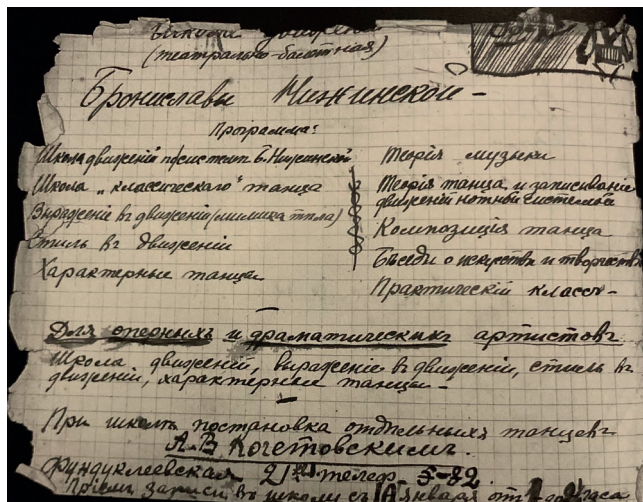 движенiй
(театрально-балетная)
Брониславы Нижинской -
Программа:
Школа движенiй по системѣ Б. Нижинской
Школа „классическаго" танца
Выраженiе въ движенiи (мимика тѣла)
Стиль въ движенiи
Характерные танцы
Теорiя музыки
Теорiя танца и записыванiе
движенiй нотной системой
Композицiя танца
Бѣседы о искусствѣ и творчествѣ
Практическiй классъ -
Для оперныхъ и драматическихъ артистовъ
Школа движенiй, выраженiе въ движенiи, стиль въ
движенiи, характерные танцы -
При школѣ постановка отдѣльныхъ танцевъ
А. В Кочетовскимъ.
Фундуклеевская 21 телеф 5-82
Прiемъ записи въ школу съ января от часа